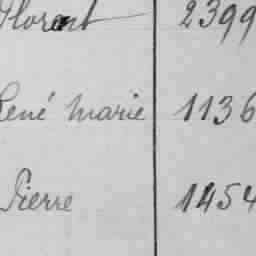 Florent 2399
René Marie 1136
Pierre 1454